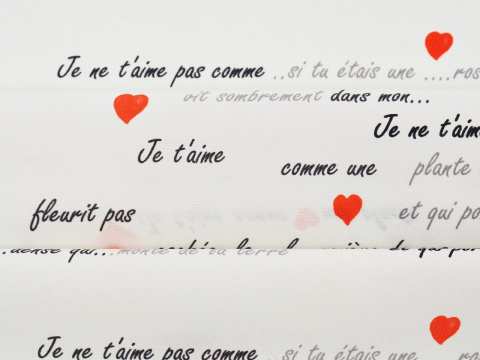 Je ne t'aime pas comme ..si tu étais une ....ros
vit sombrement dans mon...
Je ne t'aim
Je t'aime
comme une plante
fleurit pas et qui po
Je ne t'aime pas comme ..si tu étais une ....ros